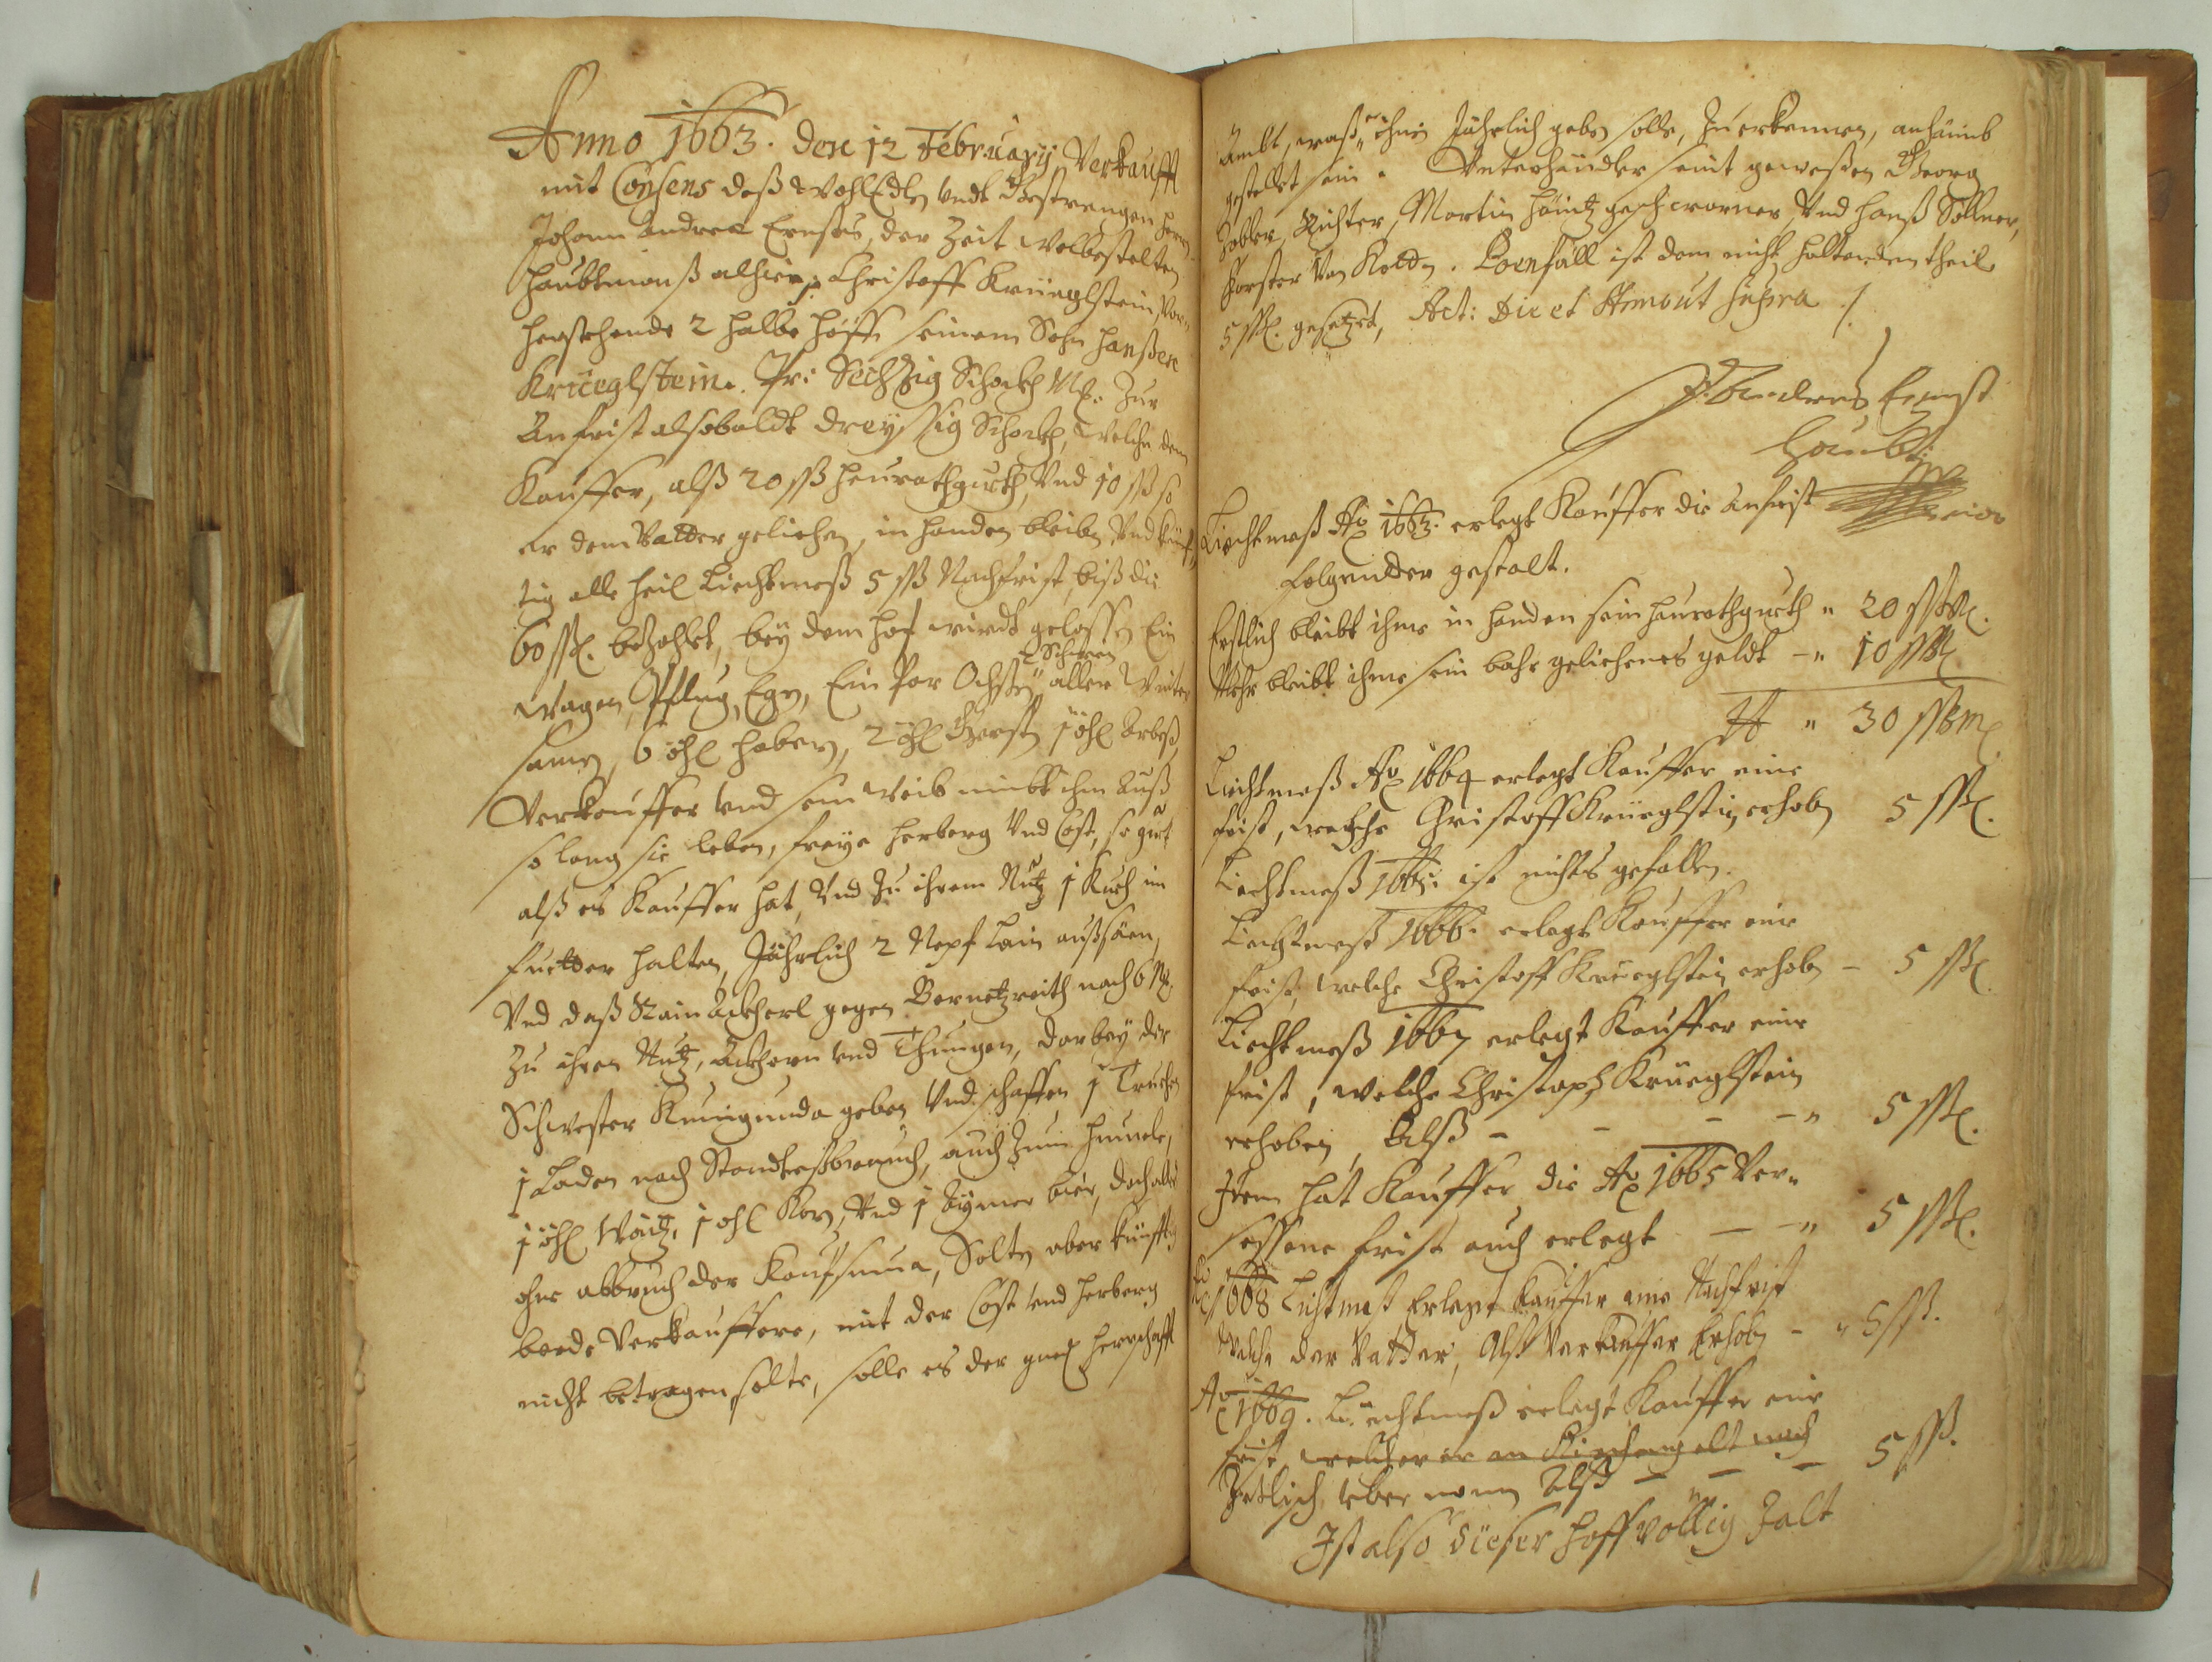 Anno 1663. den 12 February Verkaufft
mit Consens deß WohlEdlen Undt Gestrengen Herrn
Johann Andreae Ernsts, der Zeit wolbestelten
Haubtmanß alhier, Christoff Krüeglstein, vor-
herstehende 2 halbe Höff seinem Sohn Hanßen
Krüeglstein. Pr: Sechzig Schockh M. Zur
Anfrist alsobaldt dreyssig Schockh, welche dem
Kauffer, alß 20 ßß Heurathgueth, Vnd 10 ßß so
er dem Vatter geliehen, in handen bleiben Vnd künf-
tig alle heil Liechtmeß 5 ßß Nachfrist, biß die
60 ßß. bezahlt, bey dem Hof wirdt gelassen Ein
Wagen, Pflug, Egen, Ein Par Ochßen, aller Winter
samen, 6 Höhl habern, 2 Höhl Gersten 1 Höhl Arbeß,
Verkauffer Vnd sein Weib nimbt ihm Auß
so lang sie leben, freye Herberg Vnd Cost, so gut
alß es Kauffer hat, Vnd Zu ihrem Nutz 1 Kueh im
Fuetter halten, Jährlich 2 Napf Lein außsäen,
Vnd daß Rain Äckherl gegen Bernetzreith nach 6
Zu ihren Nutz, Ackhern Vnd Thungen, darbey der
Schwester Kunigunda geben Vnd schaffen 1 Truchen
1 Laden nach Standtesßbrauch, auch Zum
1 Höhl Waitz, 1 Höhl Korn, Vnd 1 Eymer bier, doch alles
ohne abbruch der Kaufsumma, Solten aber künfftig
beede Verkauffere, mit der Cost Vnd Herberg
nicht betragen solte, solle es der gned Herrschafft
Ambt, waß er ihnen Jährlich geben solle, Zu erkennen, anheimb
gestelt sein. Vnterhändler seint gewesen Georg
Richter, Martin Häintz geschworner, Vnd Hanß Söllner,
Forster Von . Poenfall ist dem nicht haltenden theil
5 ßß. gesetzet, Act: Die et Anno ut supra
J. Andreas Ernst
Haubtm
Liechtmeß Ao 1663. erlegt Kauffer die Anfrist
folgender gestalt.
Erstlich bleibt ihme in handen sein Heurathgueth " 20 ßß M.
Mehr bleibt ihme sein bahr geliehenes geldt - " 10 ßß M
" 30 ßß M
Liechtmeß Ao 1664 erlegt Kauffer eine
frist, welche Christoff Krüeglstein erhoben 5 ßß.
Liechtmeß 1665. ist nichts gefallen.
Liechtmeß 1666. erlegt Kauffer eine
frist, welche Christoff Krueglstein erhoben - 5 ßß
Liechtmeß 1667 erlegt Kauffer eine
frist, welche Christoph Krüeglstein
erhoben, Alß - - - - " 5 ßß.
Item hat Kauffer die Ao 1665 Ver-
sessene frist auch erlegt - - " 5 ßß.
Ao 1668 Lichtmeß Erlegt Kauffer eine Nachfrist
Welche der Vatter, Alß Verkauffer Erhoben - " 5 ßß.
Ao 1669. Liechtmeß erlegt Kauffer eine
frist, welcher er an Kirchengelt nach
Alß - - - 5 ßß.
Ist also dieser Hoff völlig Zalt